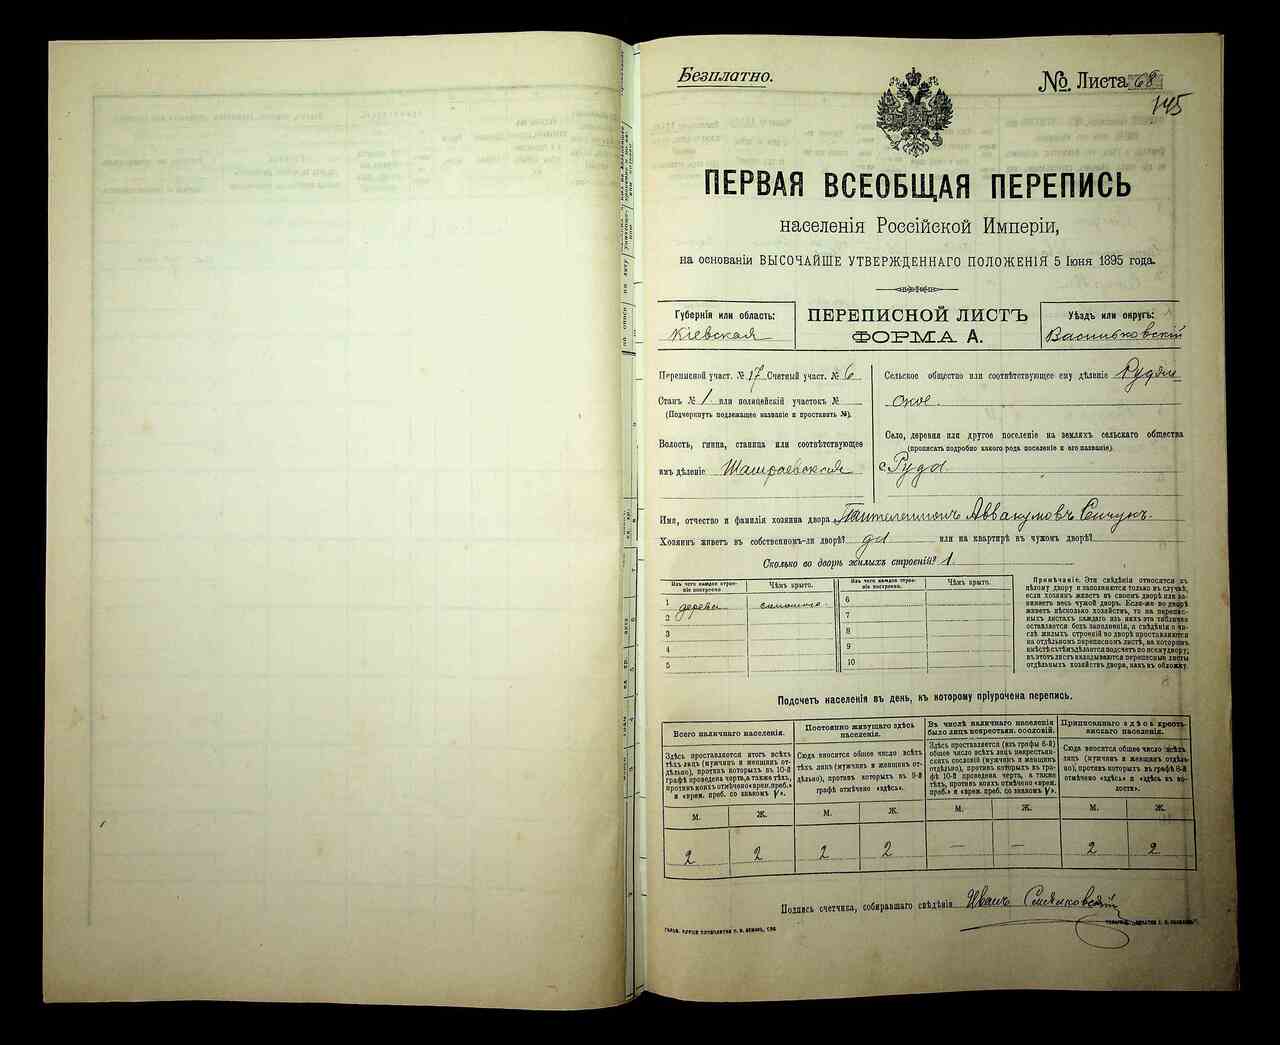 Безплатно.
№ Листа 68
145
ПЕРВАЯ ВСЕОБЩАЯ ПЕРЕПИСЬ
населенія Россійской Имперіи,
на основаніи ВЫСОЧАЙШЕ УТВЕРЖДЕННАГО ПОЛОЖЕНІЯ 5 Іюня 1895 года.
Губернія или область:
Кіевская
ПЕРЕПИСНОЙ ЛИСТЪ
ФОРМА А.
Уѣздъ или округъ:
Васильковскій
Переписной участ. № 17 Счетный участ. № 6
Станъ № 1 или полицейскій участокъ №
(Подчеркнуть подлежащее названіе и проставить №).
Волость, гмина, станица или соотвѣтствующее
имъ дѣленіе
Сельское общество или соотвѣтствующее ему дѣленіе Рудян
ское.
Село, деревня или другое поселеніе на земляхъ сельскаго общества
(прописать подробно какого рода поселеніе и его названіе)
с. Руда
Имя, отчество и фамилія хозяина двора Пантелеимонъ Аввакумовъ Сенчукъ.
Хозяинъ живетъ въ собственномъ-ли дворѣ? да или на квартирѣ въ чужомъ дворѣ?
Сколько во дворѣ жилыхъ строеній? 1.
Изъ чего каждое строеніе построено
Чѣмъ крыто.
Изъ чего каждое строеніе построено.
Чѣмъ крыто.
1 дерева соломою.
2
3
4
5
6
7
8
9
10
Примѣчаніе. Эти свѣдѣнія относятся къ
цѣлому двору и заполняются только въ случаѣ,
если хозяинъ живетъ въ своемъ дворѣ или за-
нимаетъ весь чужой дворъ. Если-же во дворѣ
живетъ нѣсколько хозяйствъ, то на перепис-
ныхъ листахъ каждаго изъ нихъ эта табличка
оставляется безъ заполненія, а свѣдѣнія о чи-
слѣ жилыхъ строеній во дворѣ проставляются
на отдѣльномъ переписномъ листѣ, на которомъ
вмѣстѣ съ тѣмъ дѣлается подсчетъ по всему двору;
въ этотъ листъ вкладываются переписные листы
отдѣльныхъ хозяйствъ двора, какъ въ обложку.
Подсчетъ населенія въ день, къ которому пріурочена перепись.
Всего наличнаго населенія.
Здѣсь проставляется итогъ всѣхъ
тѣхъ лицъ (мужчинъ и женщинъ от-
дѣльно), противъ которыхъ въ 10-й
графѣ проведена черта, а также тѣхъ,
противъ коихъ отмѣчено «врем. преб.»
и «врем. преб. со знакомъ V».
Постоянно живущаго здѣсь
населенія.
Сюда вносится общее число всѣхъ
тѣхъ лицъ (мужчинъ и женщинъ от-
дѣльно), противъ которыхъ въ 9-й
графѣ отмѣчено «здѣсь».
Въ числѣ наличнаго населенія
было лицъ некрестьян. сословій.
Здѣсь проставляется (изъ графы 6-й)
общее число всѣхъ лицъ некрестьян-
скихъ сословій (мужчинъ и женщинъ
отдѣльно), противъ которыхъ въ гра-
фѣ 10-й проведена черта, а также
тѣхъ, противъ коихъ отмѣчено «врем.
преб.» и «врем. преб. со знакомъ V».
Приписаннаго здѣсь кресть-
янскаго населенія.
Сюда вносится общее число всѣхъ
лицъ (мужчинъ и женщинъ отдѣль-
но), противъ которыхъ въ графѣ 8-й
отмѣчено «здѣсь» и «здѣсь въ во-
лости».
М. Ж. М. Ж. М. Ж. М. Ж.
2 2 2 2 — — 2 2
Подпись счетчика, собиравшаго свѣдѣнія Иванъ